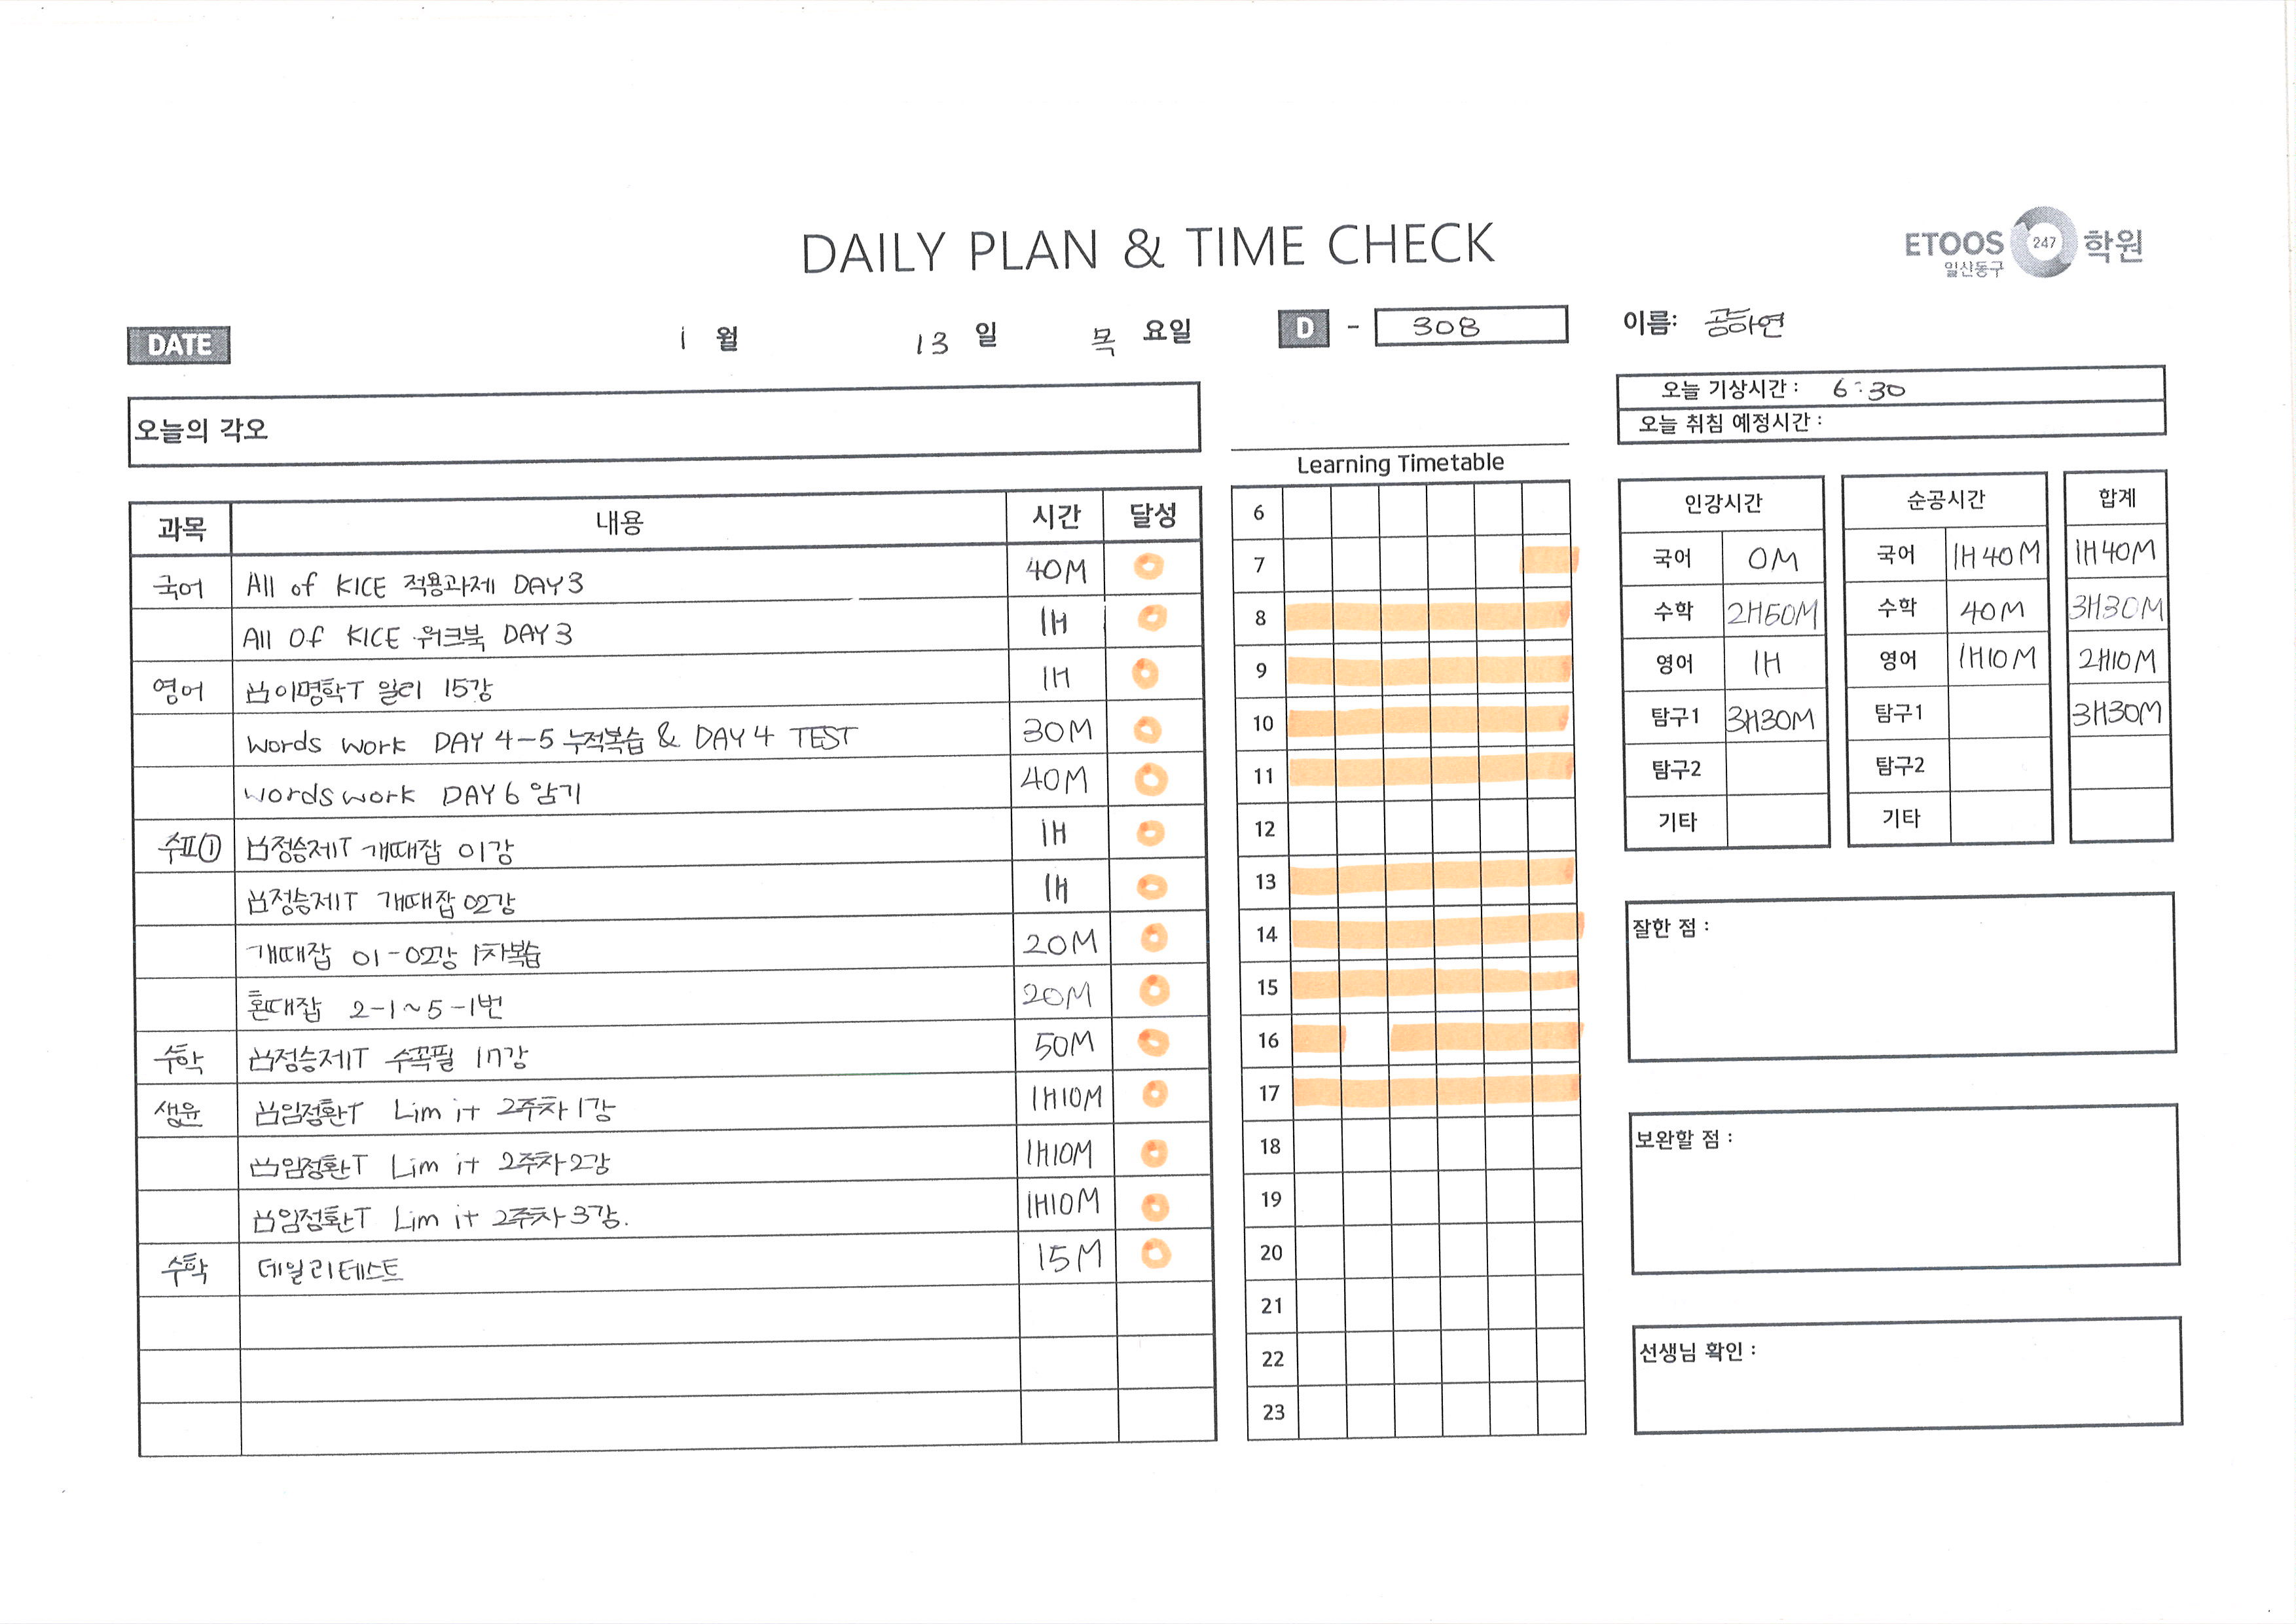 DAILY PLAN & TIME CHECK
ETOOS 247 학원
일산동구
DATE 1 월 13 일 목 요일
D - 308
이름: 공하연
오늘의 각오
오늘 기상시간 : 6:30
오늘 취침 예정시간 :
과목 내용 시간 달성
국어 All of KICE 적용과제 DAY3 40M
All Of KICE 워크북 DAY3 1H
영어 이명학T 일리 15강 1H
words work DAY 4-5 누적복습 & DAY 4 TEST 30M
words work DAY 6 암기 40M
수II① 정승제T 개때잡 01강 1H
정승제T 개때잡 02강 1H
개때잡 01-02강 1차복습 20M
혼때잡 2-1~5-1번 20M
수학 정승제T 수꼭필 17강 50M
생윤 임정환T Lim it 2주차 1강 1H10M
임정환T Lim it 2주차 2강 1H10M
임정환T Lim it 2주차 3강. 1H10M
수학 데일리테스트 15M
Learning Timetable
6
7
8
9
10
11
12
13
14
15
16
17
18
19
20
21
22
23
인강시간 순공시간 합계
국어 0M 국어 1H40M 1H40M
수학 2H50M 수학 40M 3H30M
영어 1H 영어 1H10M 2H10M
탐구1 3H30M 탐구1 3H30M
탐구2 탐구2
기타 기타
잘한 점 :
보완할 점 :
선생님 확인 :